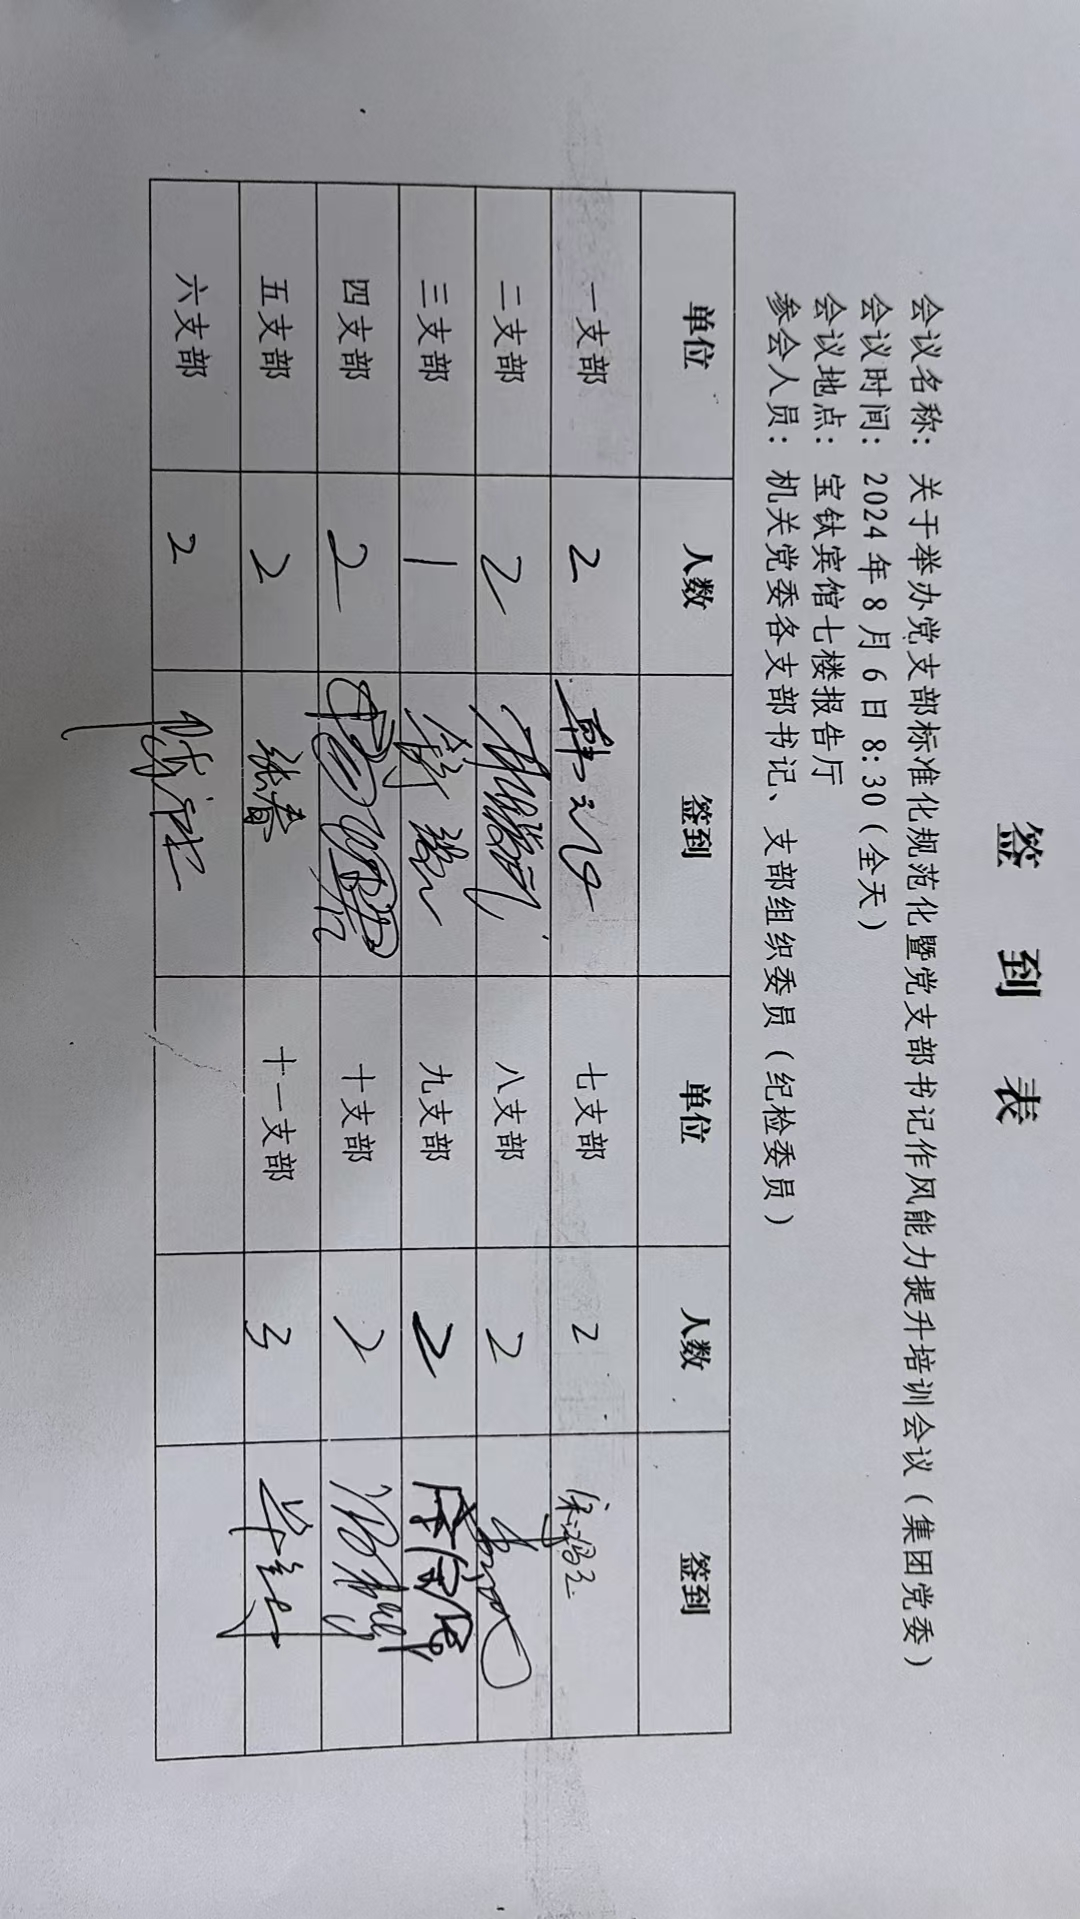 签 到 表
会议名称：关于举办党支部标准化规范化暨党支部书记作风能力提升培训会议（集团党委）
会议时间：2024年8月6日8:30（全天）
会议地点：宝钛宾馆七楼报告厅
参会人员：机关党委各支部书记、支部组织委员（纪检委员）
单位 人数 签到 单位 人数 签到
一支部 2 七支部 2
二支部 2 八支部 2
三支部 1 九支部 2
四支部 2 十支部 2
五支部 2 张春 十一支部 3
六支部 2